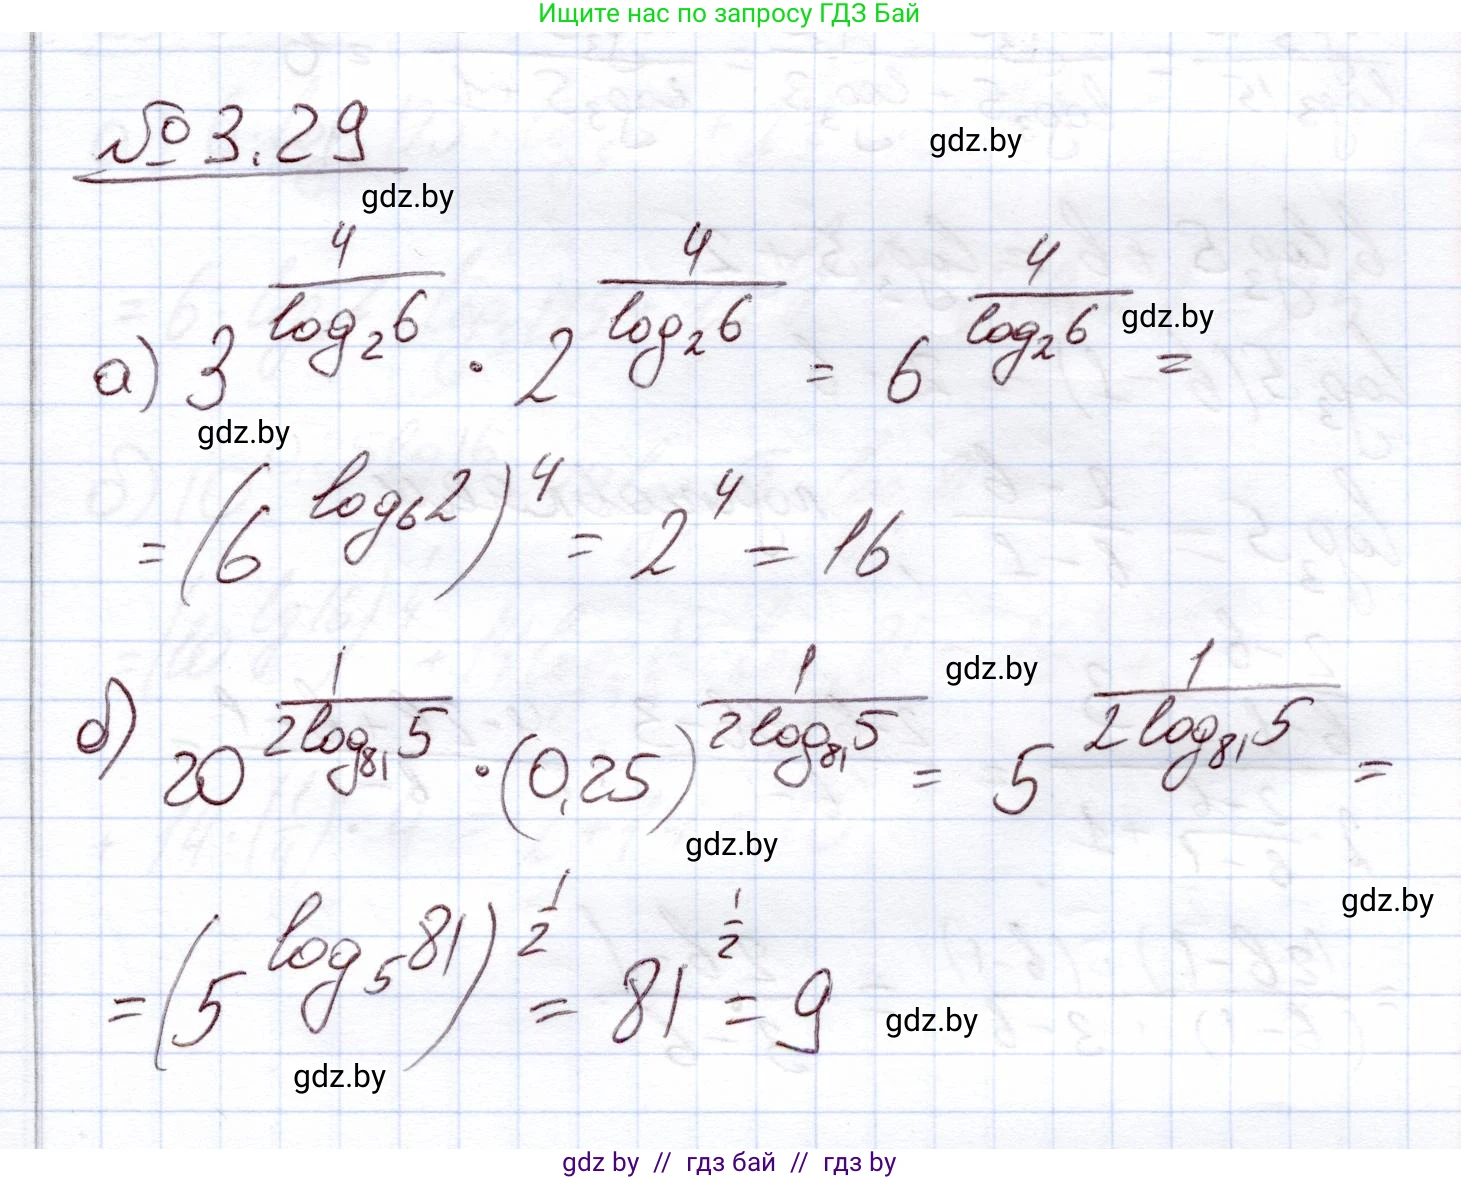 Ищите нас по запросу ГДЗ Бай
№ 3.29
gdz.by
gdz.by
а) 3^(4/log₂6) · 2^(4/log₂6) = 6^(4/log₂6) =
gdz.by
gdz.by
= (6^(log₆2))^4 = 2^4 = 16
gdz.by
б) 20^(1/(2log₈₁5)) · (0,25)^(1/(2log₈₁5)) = 5^(1/(2log₈₁5)) =
gdz.by
gdz.by
= (5^(log₅81))^(1/2) = 81^(1/2) = 9
gdz.by
gdz.by
gdz by // гдз бай // гдз by